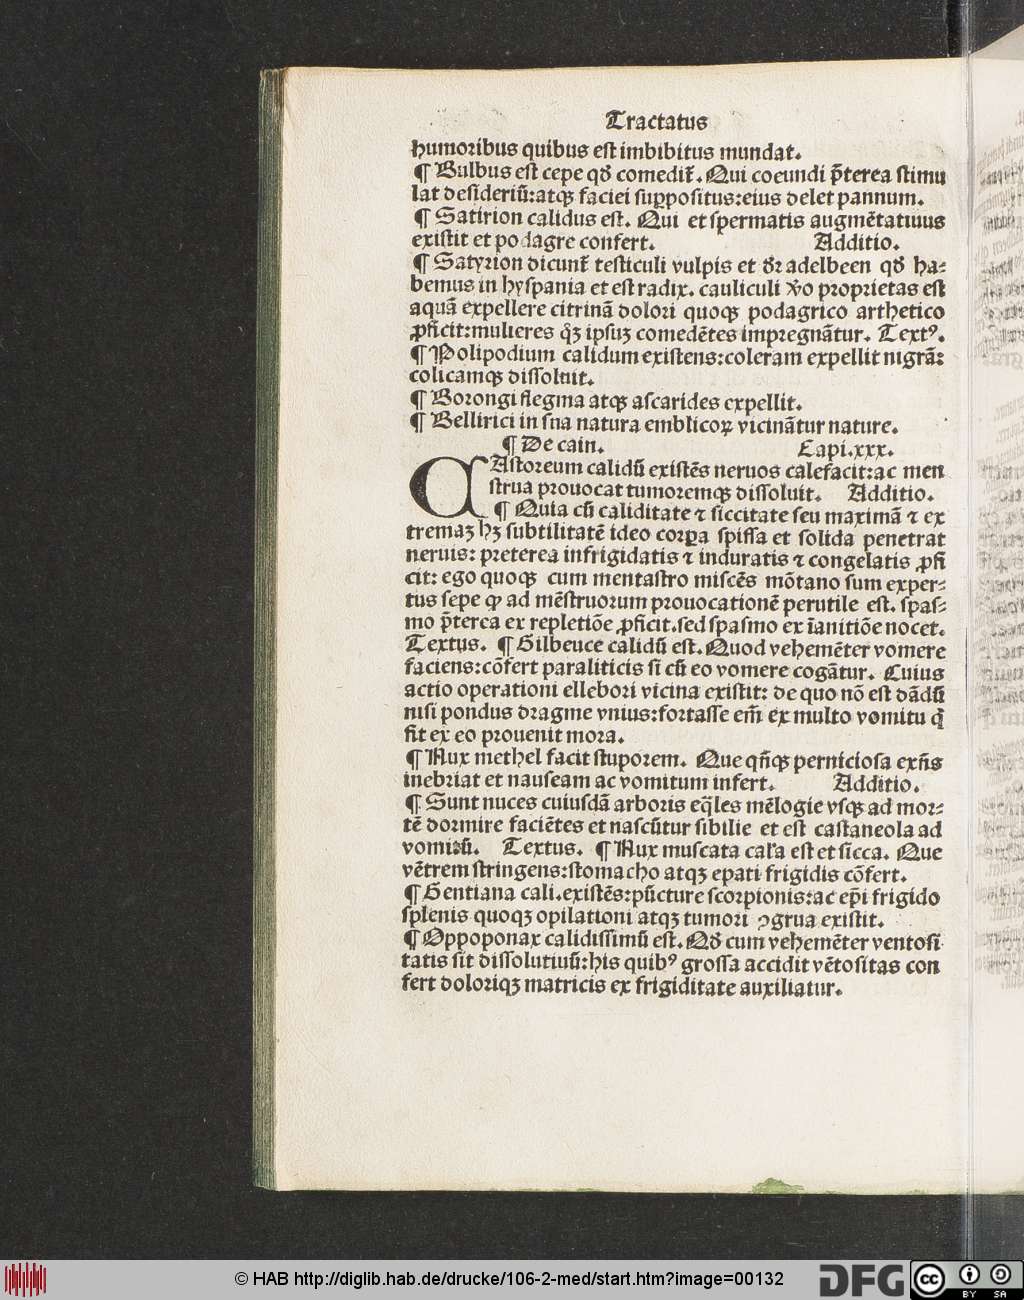 Tractatus
humoribus quibus est imbibitus mundat.
¶ Bulbus est cepe qđ comedit̄. Qui coeundi p̄terea stimu
lat desideriū: atqꝫ faciei suppositus: eius delet pannum.
¶ Satirion calidus est. Qui et spermatis augmētatiuus
existit et podagre confert. Additio.
¶ Satyrion dicunt̄ testiculi vulpis et dr̄ adelbeen qđ ha⸗
bemus in hyspania et est radix. cauliculi v̄o proprietas est
aquā expellere citrinā dolori quoqꝫ podagrico arthetico
ꝓficit: mulieres qꝫ ipsuꝫ comedētes impregnātur. Textꝰ.
¶ Polipodium calidum existens: coleram expellit nigrā:
colicamqꝫ dissoluit.
¶ Borongi flegma atqꝫ ascarides expellit.
¶ Bellirici in sua natura emblicoꝝ vicinātur nature.
¶ De cain. Capi.xxx.
CAstoreum calidū existēs neruos calefacit: ac men
strua prouocat tumoremqꝫ dissoluit. Additio.
¶ Quia cū caliditate ⁊ siccitate seu maximā ⁊ ex
tremaꝫ hꝫ subtilitatē ideo corꝑa spissa et solida penetrat
neruis: preterea infrigidatis ⁊ induratis ⁊ congelatis ꝓfi
cit: ego quoqꝫ cum mentastro miscēs mōtano sum exper⸗
tus sepe ꝙ ad mēstruorum prouocationē perutile est. spas⸗
mo p̄terea ex repletiōe ꝓficit. sed spasmo ex īanitiōe nocet.
Textus. ¶ Gilbeuce calidū est. Quod vehemēter vomere
faciens: cōfert paraliticis si cū eo vomere cogātur. Cuius
actio operationi ellebori vicina existit: de quo nō est dādū
nisi pondus dragme vnius: fortasse em̄ ex multo vomitu q̄
fit ex eo prouenit mora.
¶ Nux methel facit stuporem. Que qn̄qꝫ perniciosa exn̄s
inebriat et nauseam ac vomitum infert. Additio.
¶ Sunt nuces cuiusdā arboris eq̄les mēlogie vsqꝫ ad mor⸗
tē dormire faciētes et nascūtur sibilie et est castaneola ad
vomitū. Textus. ¶ Nux muscata cal'a est et sicca. Que
vētrem stringens: stomacho atqꝫ epati frigidis cōfert.
¶ Gentiana cali. existēs: pūcture scorpionis: ac ep̄i frigido
splenis quoqꝫ opilationi atqꝫ tumori ꝯgrua existit.
¶ Oppoponax calidissimū est. Qđ cum vehemēter ventosi
tatis sit dissolutiuū: his quibꝰ grossa accidit vētositas con
fert doloriqꝫ matricis ex frigiditate auxiliatur.
© HAB http://diglib.hab.de/drucke/106-2-med/start.htm?image=00132
DFG
cc BY SA